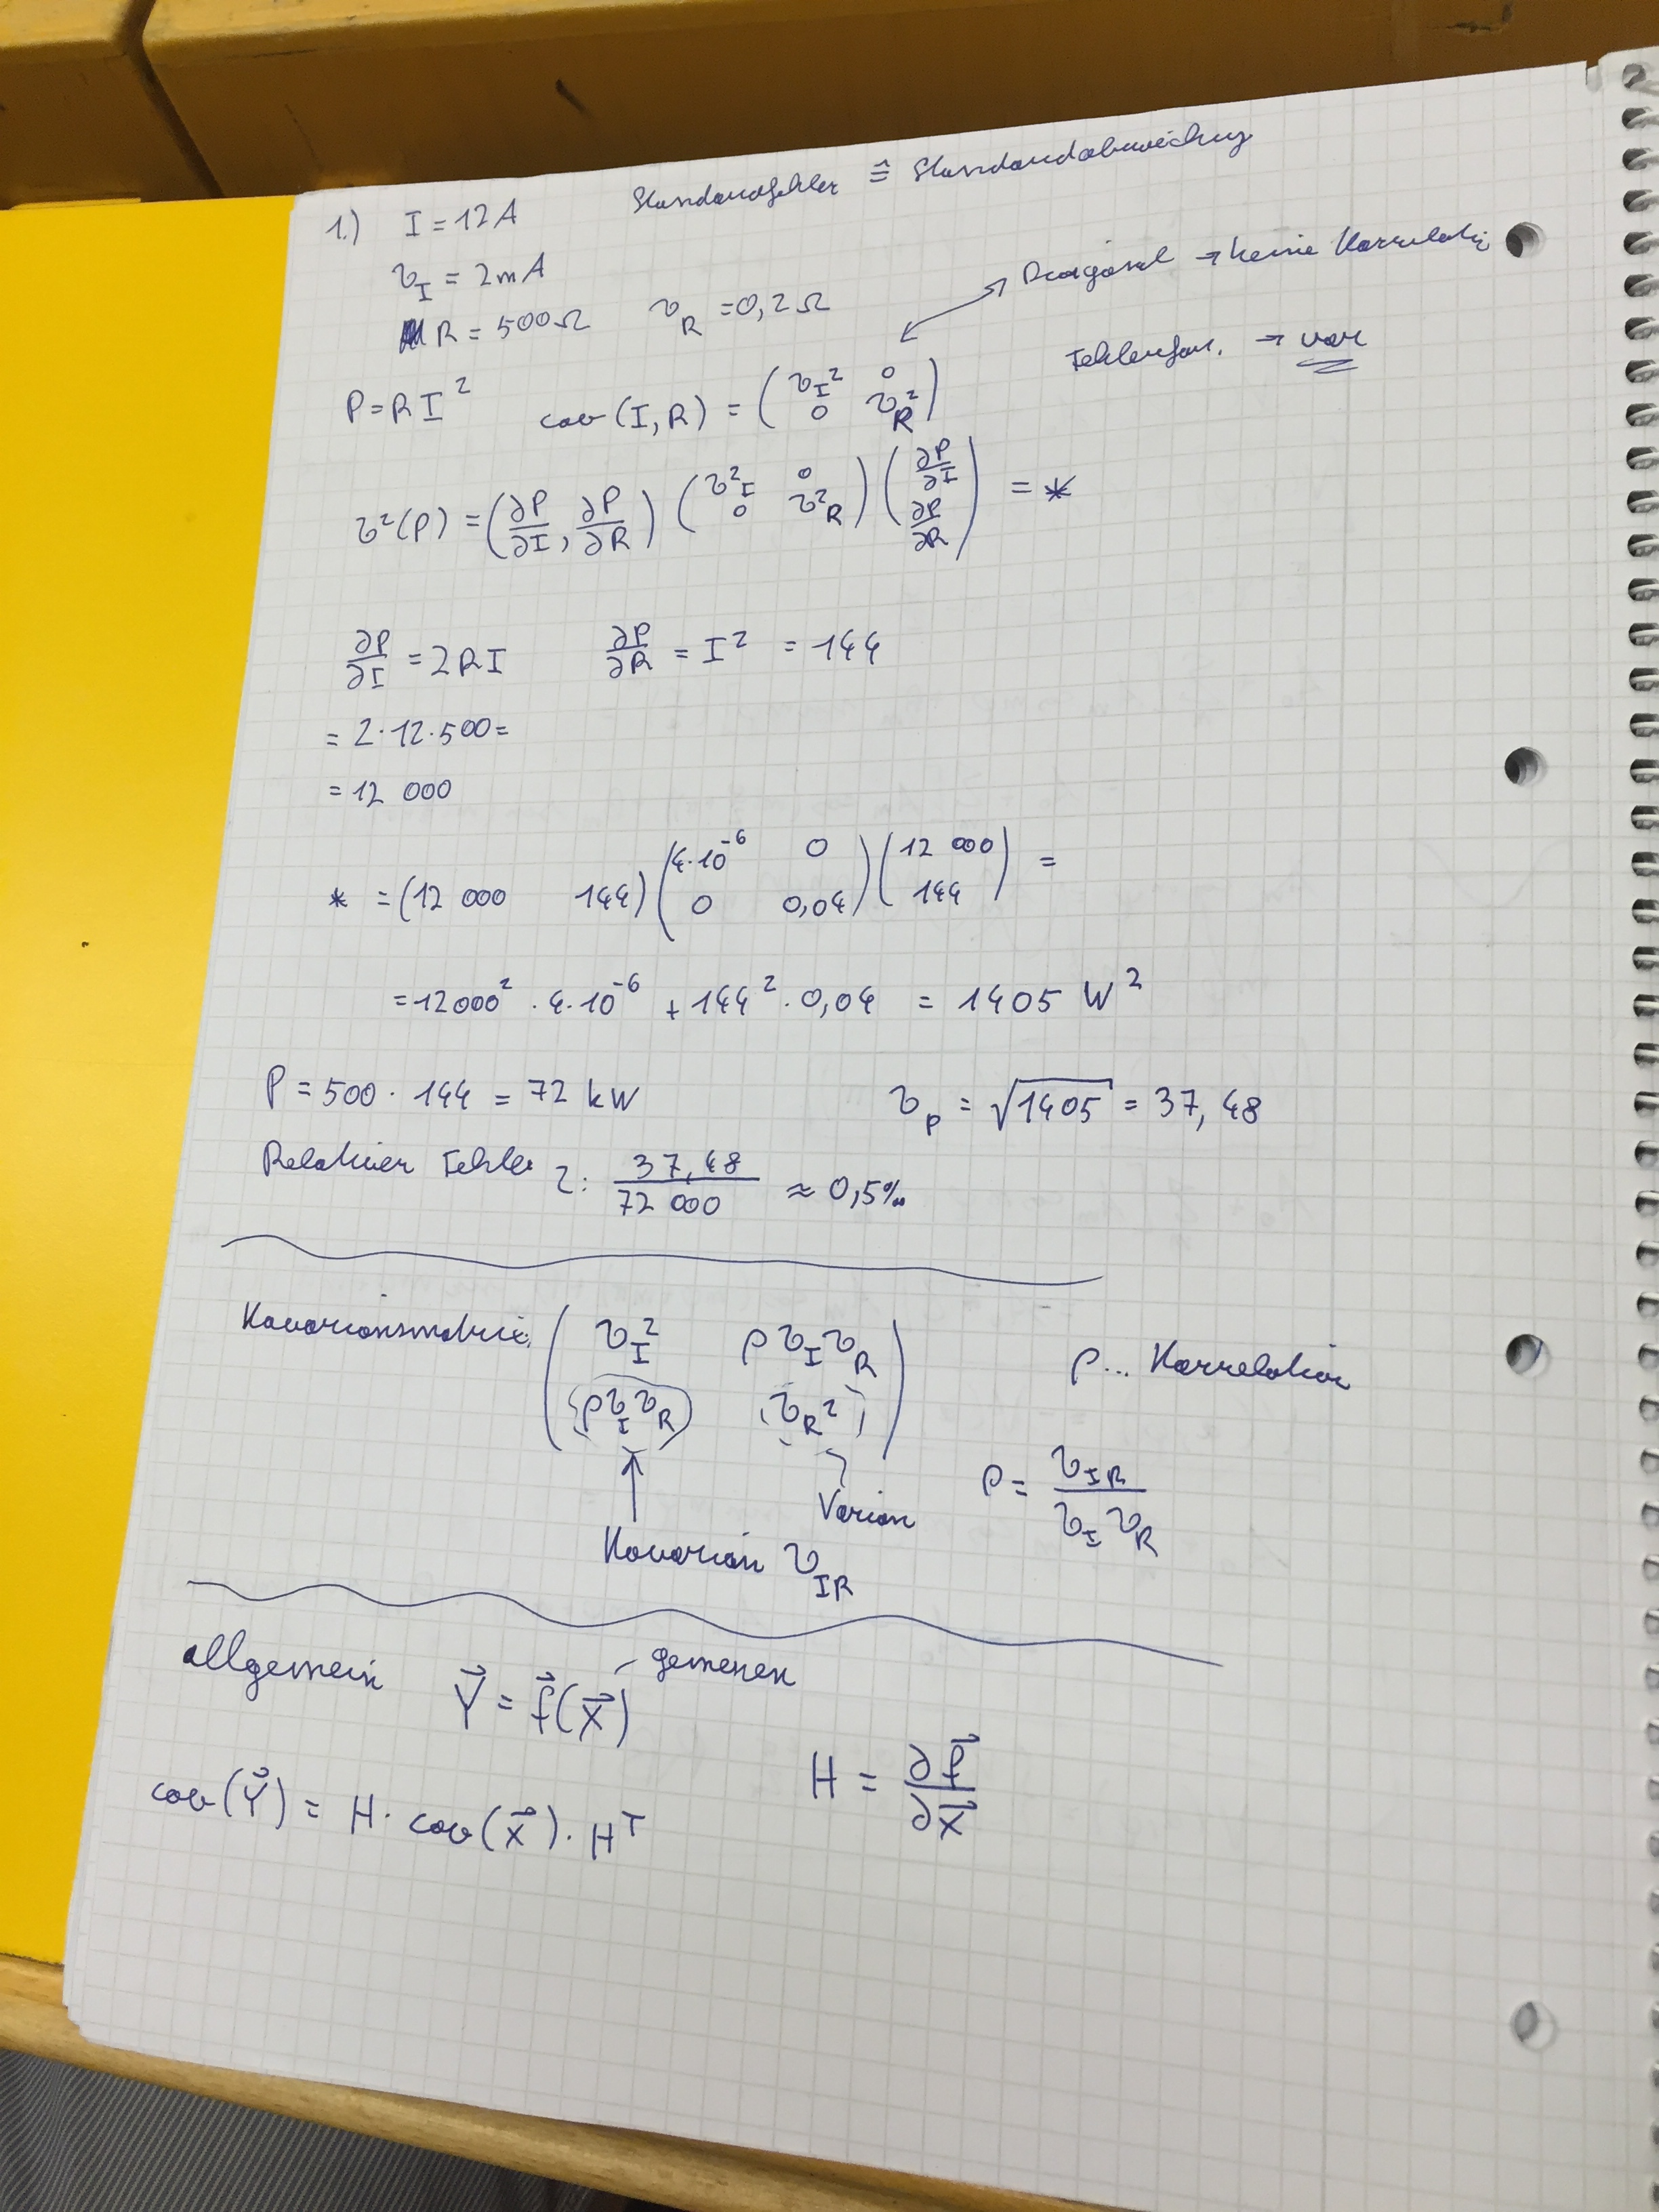 1.) I = 12 A Standardfehler ≙ Standardabweichung
σ_I = 2mA
R = 500Ω σ_R = 0,2Ω
Diagonal → keine Korrelation
P = R I² cov(I,R) = (σ_I² 0; 0 σ_R²)
→ var
σ²(P) = (∂P/∂I, ∂P/∂R) (σ²_I 0; 0 σ²_R) (∂P/∂I; ∂P/∂R) = *
∂P/∂I = 2RI ∂P/∂R = I² = 144
= 2·12·500 =
= 12 000
* = (12 000 144) (4·10⁻⁶ 0; 0 0,04) (12 000; 144) =
= 12000² · 4·10⁻⁶ + 144² · 0,04 = 1405 W²
P = 500 · 144 = 72 kW σ_P = √1405 = 37,48
Relativer Fehler : 37,48/72 000 ≈ 0,5‰
Kovarianzmatrix: (σ_I² ρσ_Iσ_R; ρσ_Iσ_R σ_R²) ρ... Korrelation
ρ = σ_IR / σ_I σ_R
Varianz
Kovarianz σ_IR
allgemein Y⃗ = f⃗(X⃗) gemessen
H = ∂f⃗/∂X⃗
cov(Y⃗) = H · cov(X⃗) · Hᵀ